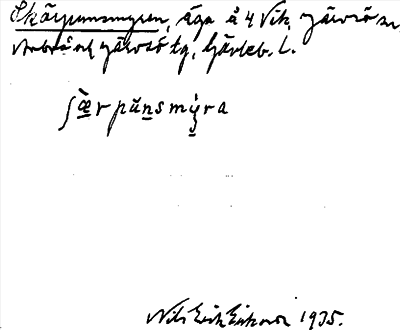 Skärpunsmyren, äga å 4 Vik, Järvsö sn,
Arbrå och Järvsö tg, Gävleb. l.
ʃæ̀r pŭn̲s mẏ̲ra
Nils Erik Eriksson 1935.